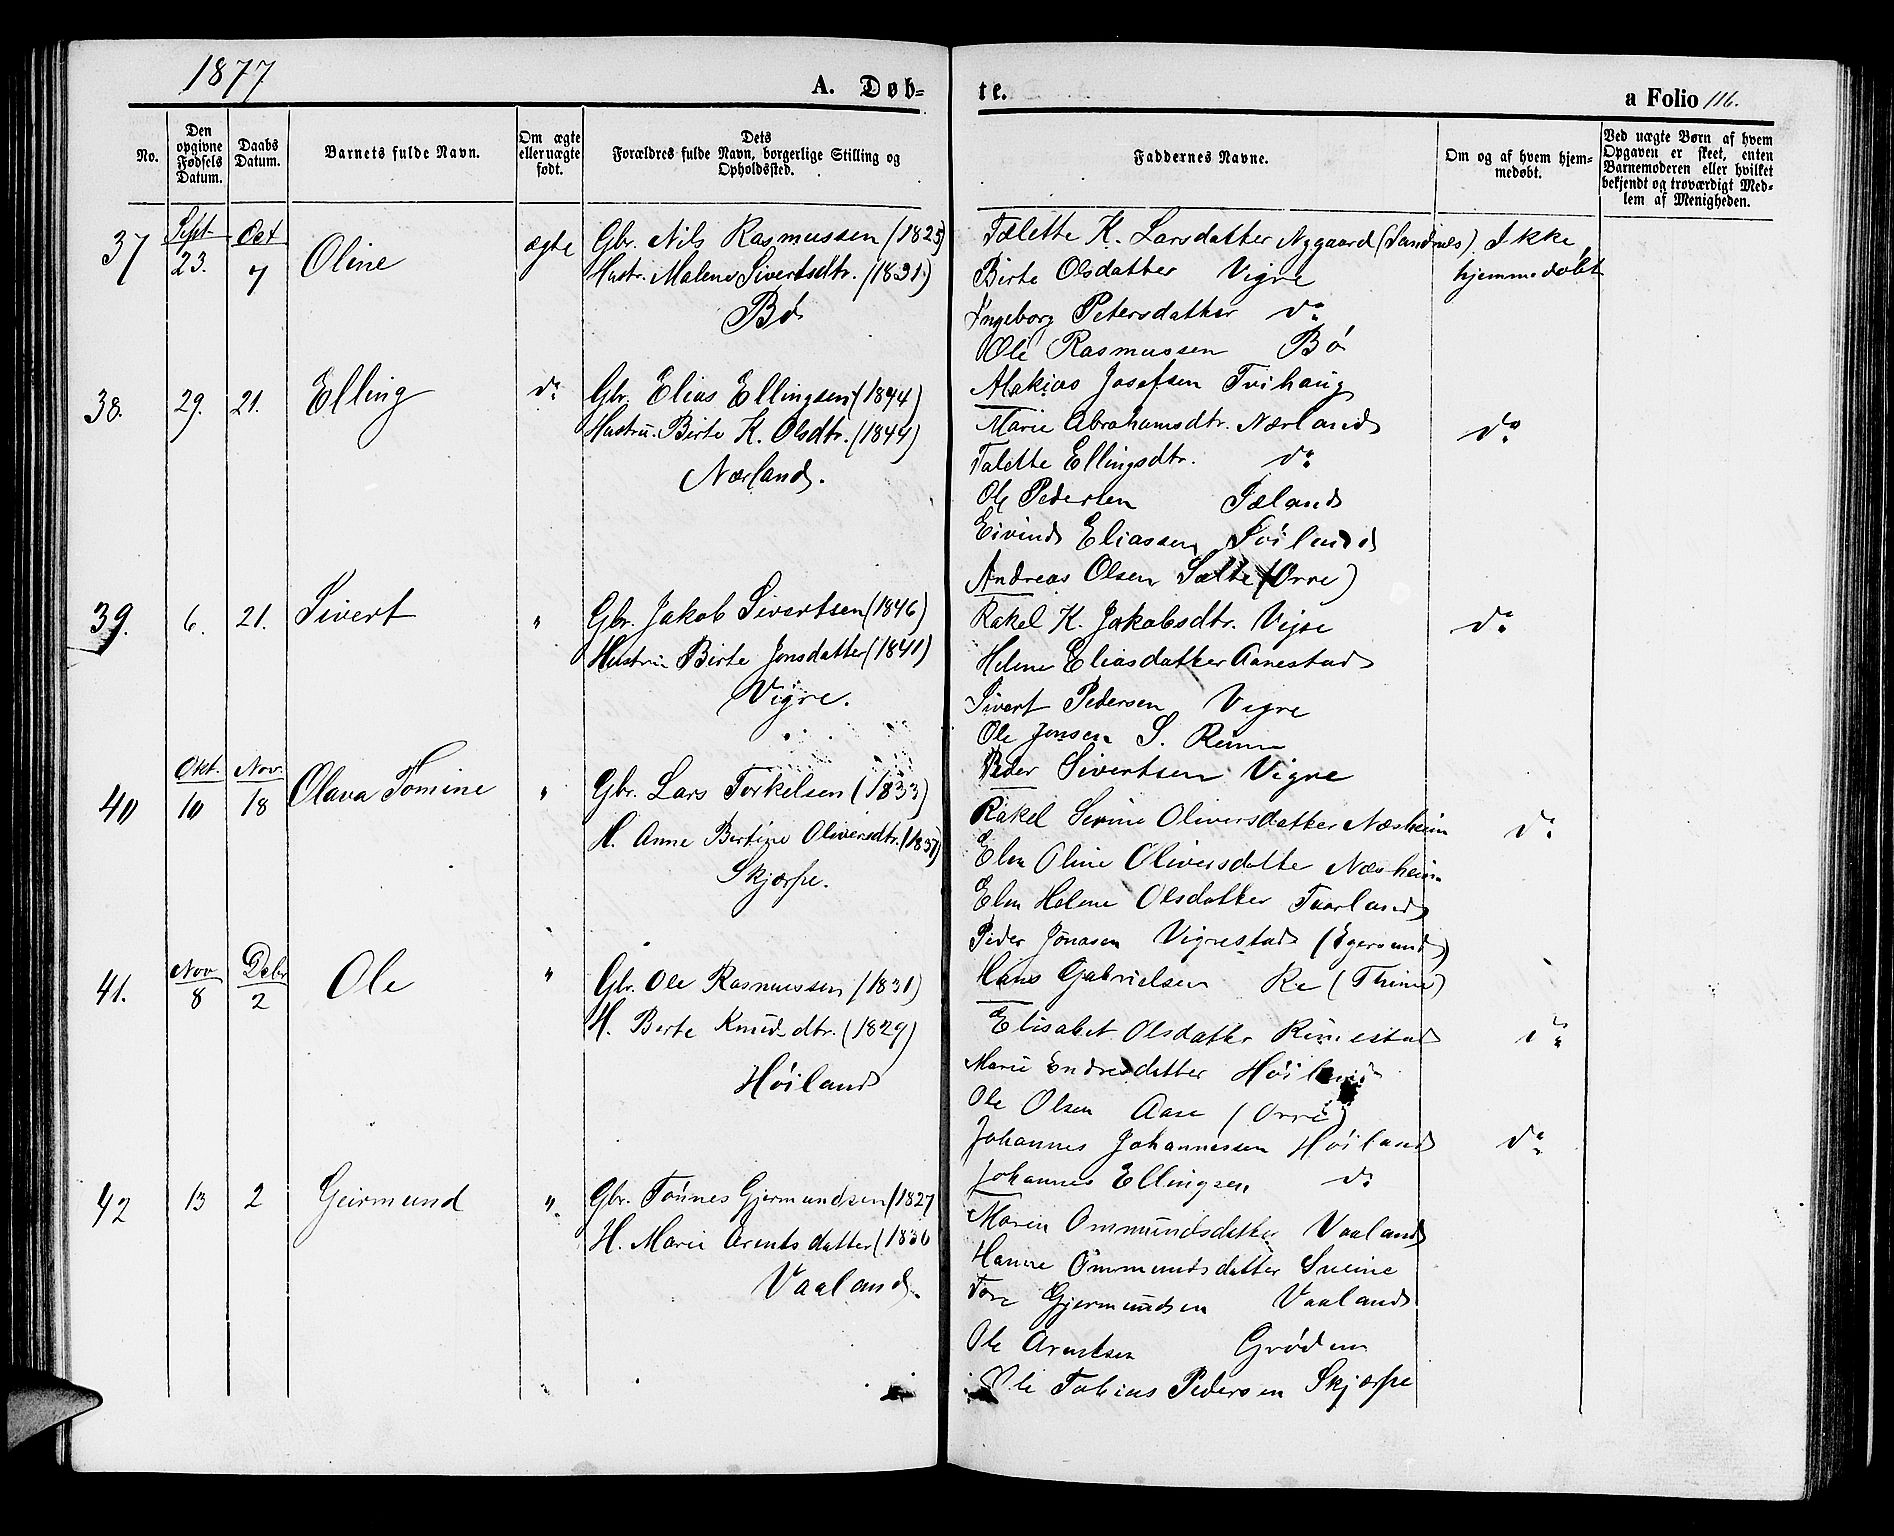 1877
A. Døb-
No.
Den opgivne Fødsels Datum.
Daabs Datum.
Barnets fulde Navn.
Om ægte eller uægte født.
Dets Forældres fulde Navn, borgerlige Stilling og Opholdssted.
37
Sept 23.
Oct 7
Oline
ægte
Gbr. Nils Rasmussen (1825)
Hustr. Malene Sivertsdtr. (1831)
Bø
38.
29.
21.
Elling
do
Gbr. Elias Ellingsen (1844)
Hustru. Birte K. Olsdtr. (1844)
Nærland.
39.
6.
21.
Sivert
"
Gbr. Jakob Sivertsen (1846)
Hustru Birte Jonsdatter (1841)
Vigre.
40
Okt. 10
Nov. 18
Olava Tomine
"
Gbr. Lars Torkelsen (1833)
H. Anne Bertine Oliversdtr. (1837)
Skjærpe.
41.
Nov 8
Decbr 2
Ole
"
Gbr. Ole Rasmussen (1831)
H. Berte Knudsdtr. (1829)
Høiland
42
13
2
Geirmund
"
Gbr. Tønnes Gjermundsen (1827
H. Marie Arntsdatter (1836
Vaaland.
te.
a Folio 116.
Faddernes Navne.
Om og af hvem hjem-
medøbt.
Ved uægte Børn af hvem
Opgaven er skeet, enten
Barnemoderen eller hvilket
bekjendt og troværdigt Med-
lem af Menigheden.
Tælette K. Larsdatter Nygaard (Sandnes) Ikke
Birte Olsdatter Vigre hjemmedøbt
Ingeborg Petersdatter do
Ole Rasmussen Bø
Malkias Josefsen Tvihaug
Marie Abrahamsdtr. Nærland do
Talette Ellingsdtr. do
Ole Pedersen Tæland
Eivind Eliassen Høiland
Andreas Olsen Salte (Orre)
Rakel K. Jakobsdtr. Vigre do
Helene Eliasdatter Aanestad
Sivert Pedersen Vigre
Ole Jonsen S. Reime
Peder Sivertsen Vigre
Rakel Sirine Oliversdatter Næsheim do
Elen Oline Oliversdatte Næsheim
Elen Helene Olsdatter Taarland
Peder Jonasen Vigrestad (Egersund)
Hans Gabrielsen Re (Thime)
Elisabet Olsdatter Rimestad do
Marie Endresdatter Høiland
Ole Olsen Aase (Orre)
Johannes Johannessen Høiland do
Johannes Ellingsen do
Maren Ommundsdatter Vaaland
Hanne Ommundsdatter
Tore Gjermundsen Vaaland
Ole Arntsen Grødem
Ole Tobias Pedersen Skjærpe